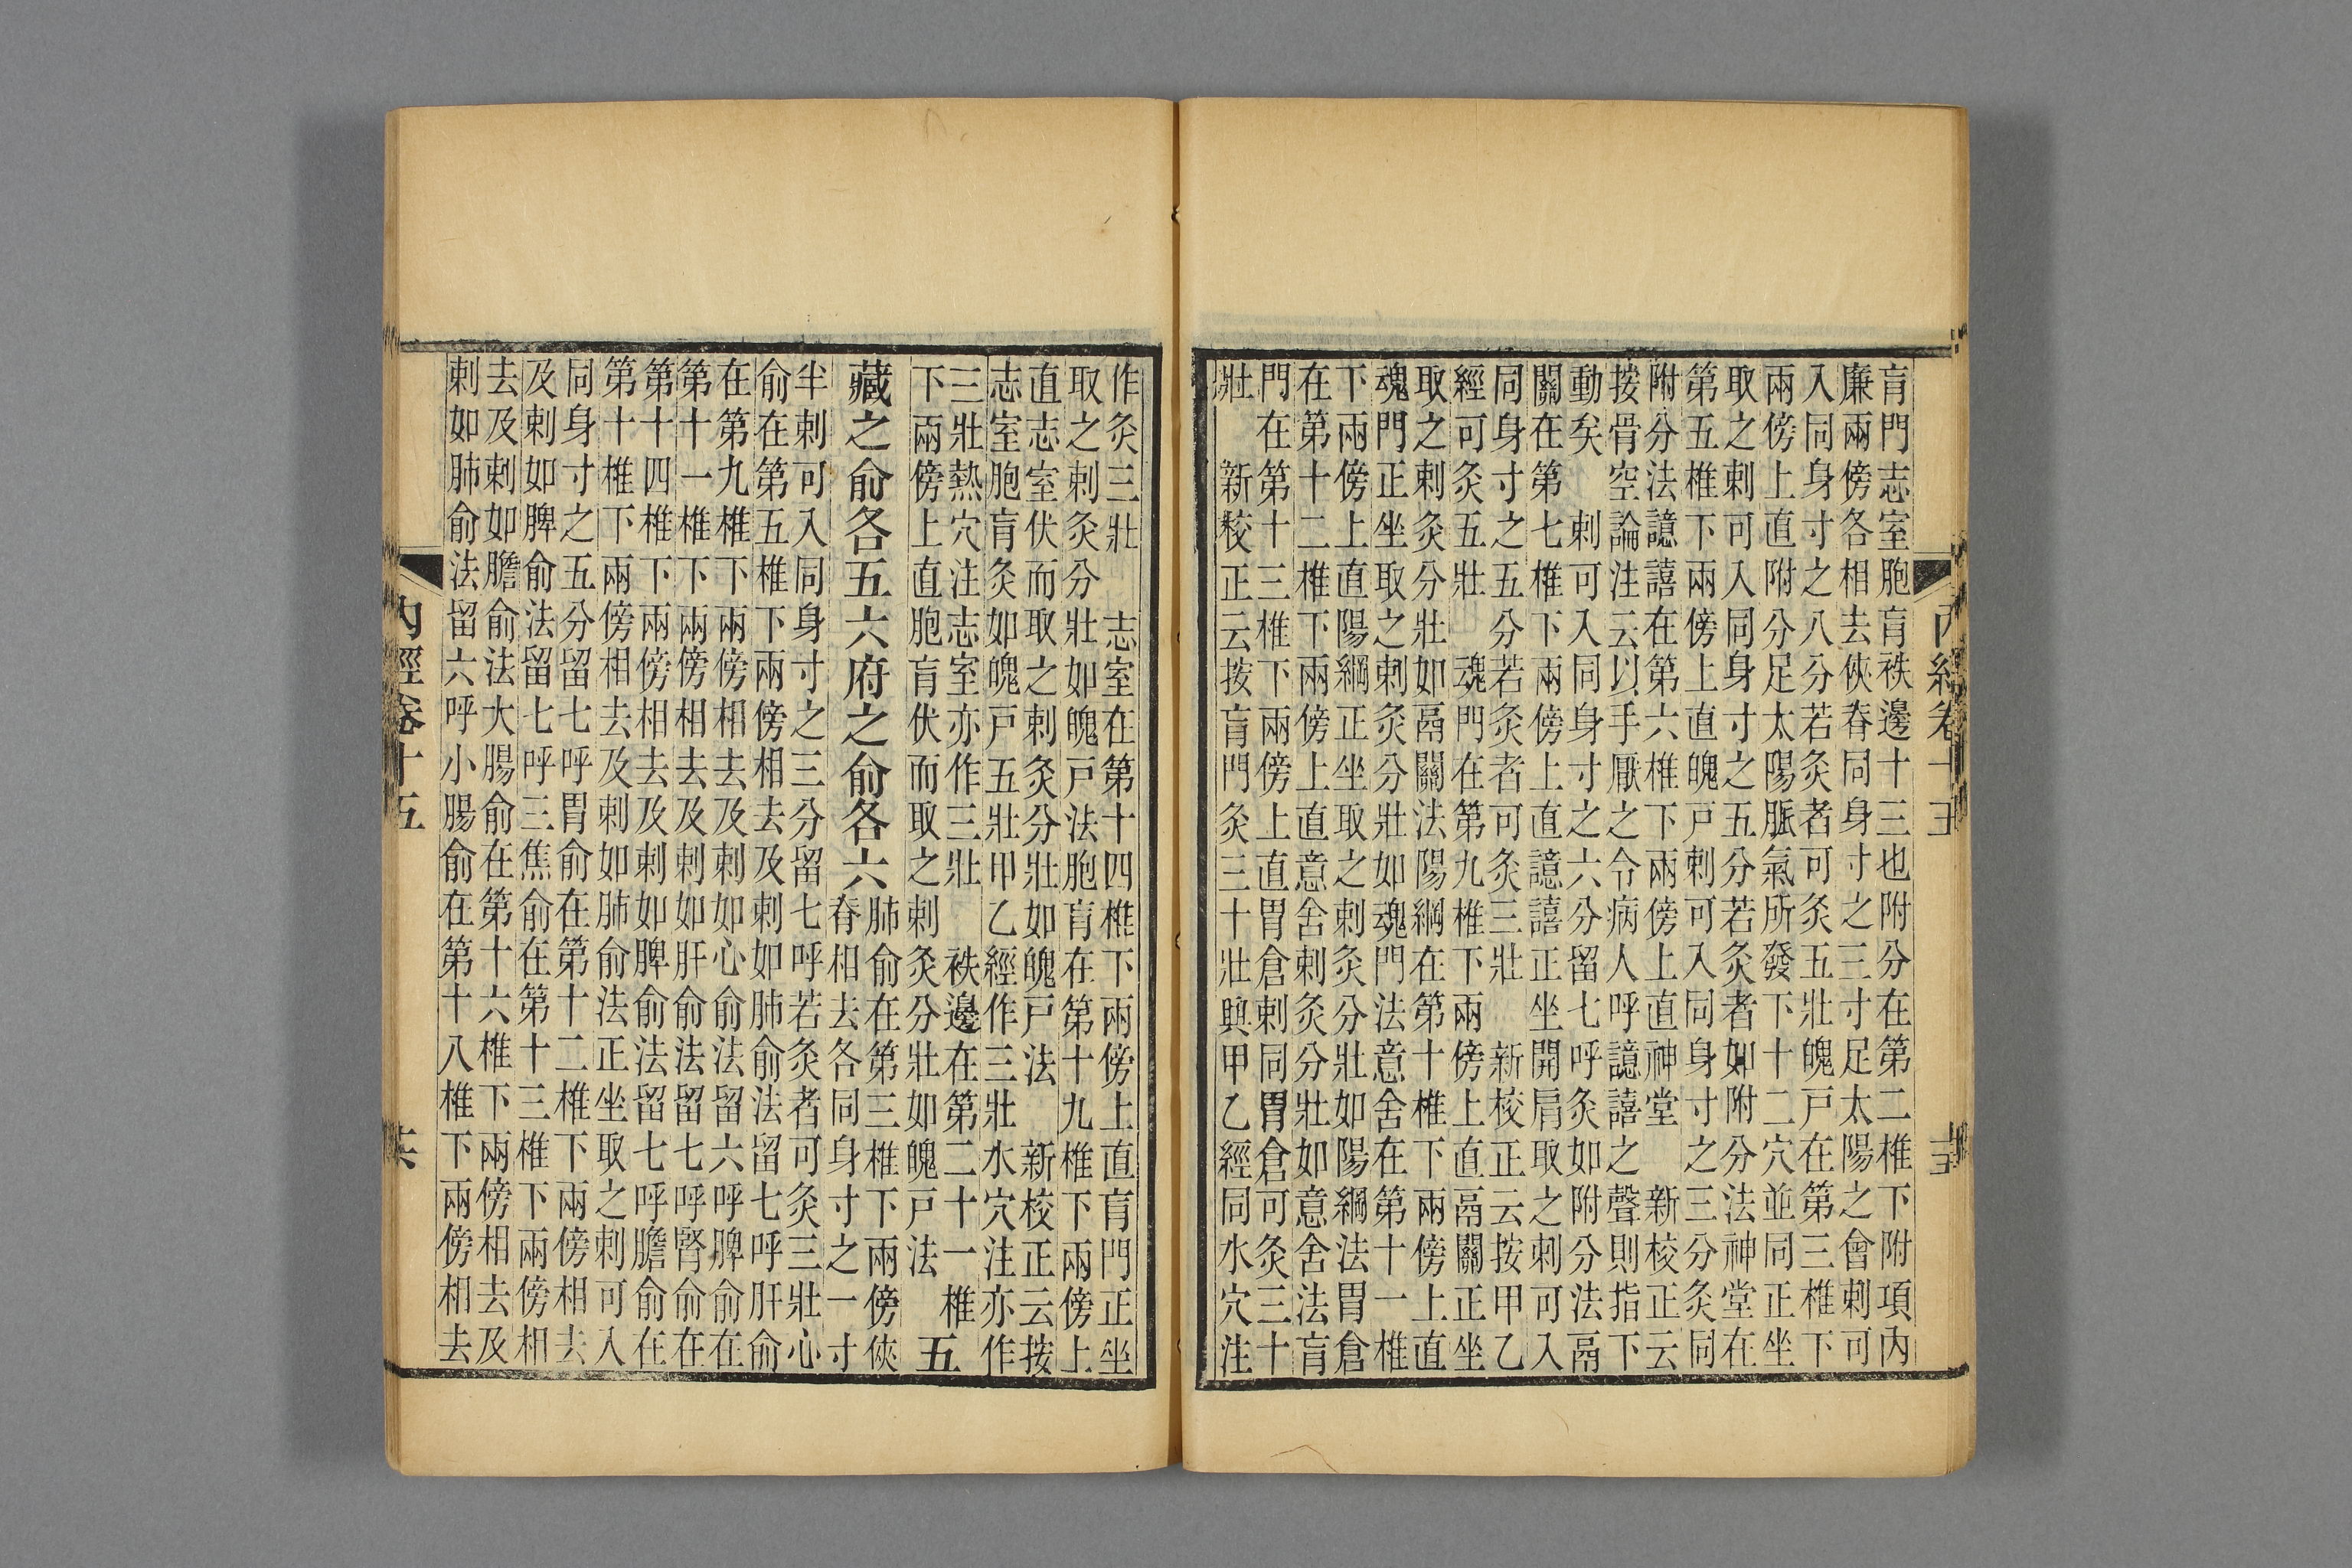 內經卷十五
肓門志室胞肓袟邊十三也附分在第二椎下附項內
廉兩傍各相去俠脊同身寸之三寸足太陽之會刺可
入同身寸之八分若灸者可灸五壯魄戶在第三椎下
兩傍上直附分足太陽脈氣所發下十二穴並同正坐
取之刺可入同身寸之五分若灸者如附分法神堂在
第五椎下兩傍上直魄戶刺可入同身寸之三分灸同
附分法譩譆在第六椎下兩傍上直神堂 新校正云
按骨空論注云以手厭之令病人呼譩譆之聲則指下
動矣 刺可入同身寸之六分留七呼灸如附分法鬲
關在第七椎下兩傍上直譩譆正坐開肩取之刺可入
同身寸之五分若灸者可灸三壯 新校正云按甲乙
經可灸五壯 魂門在第九椎下兩傍上直鬲關正坐
取之刺灸分壯如鬲關法陽綱在第十椎下兩傍上直
魂門正坐取之刺灸分壯如魂門法意舍在第十一椎
下兩傍上直陽綱正坐取之刺灸分壯如陽綱法胃倉
在第十二椎下兩傍上直意舍刺灸分壯如意舍法肓
門在第十三椎下兩傍上直胃倉刺同胃倉可灸三十
壯 新校正云按肓門灸三十壯與甲乙經同水穴注
作灸三壯 志室在第十四椎下兩傍上直肓門正坐
取之刺灸分壯如魄戶法胞肓在第十九椎下兩傍上
直志室伏而取之刺灸分壯如魄戶法 新校正云按
志室胞肓灸如魄戶五壯甲乙經作三壯水穴注亦作
三壯熱穴注志室亦作三壯 袟邊在第二十一椎
下兩傍上直胞肓伏而取之刺灸分壯如魄戶法
五
藏之俞各五六府之俞各六
肺俞在第三椎下兩傍俠
脊相去各同身寸之一寸
半刺可入同身寸之三分留七呼若灸者可灸三壯心
俞在第五椎下兩傍相去及刺如肺俞法留七呼肝俞
在第九椎下兩傍相去及刺如心俞法留六呼脾俞在
第十一椎下兩傍相去及刺如肝俞法留七呼腎俞在
第十四椎下兩傍相去及刺如脾俞法留七呼膽俞在
第十椎下兩傍相去及刺如肺俞法正坐取之刺可入
同身寸之五分留七呼胃俞在第十二椎下兩傍相去
及刺如脾俞法留七呼三焦俞在第十三椎下兩傍相
去及刺如膽俞法大腸俞在第十六椎下兩傍相去及
刺如肺俞法留六呼小腸俞在第十八椎下兩傍相去
內經卷十五